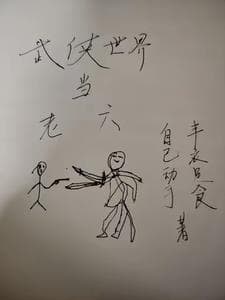 武侠世界
当
老六
丰衣足食
自己动手 著